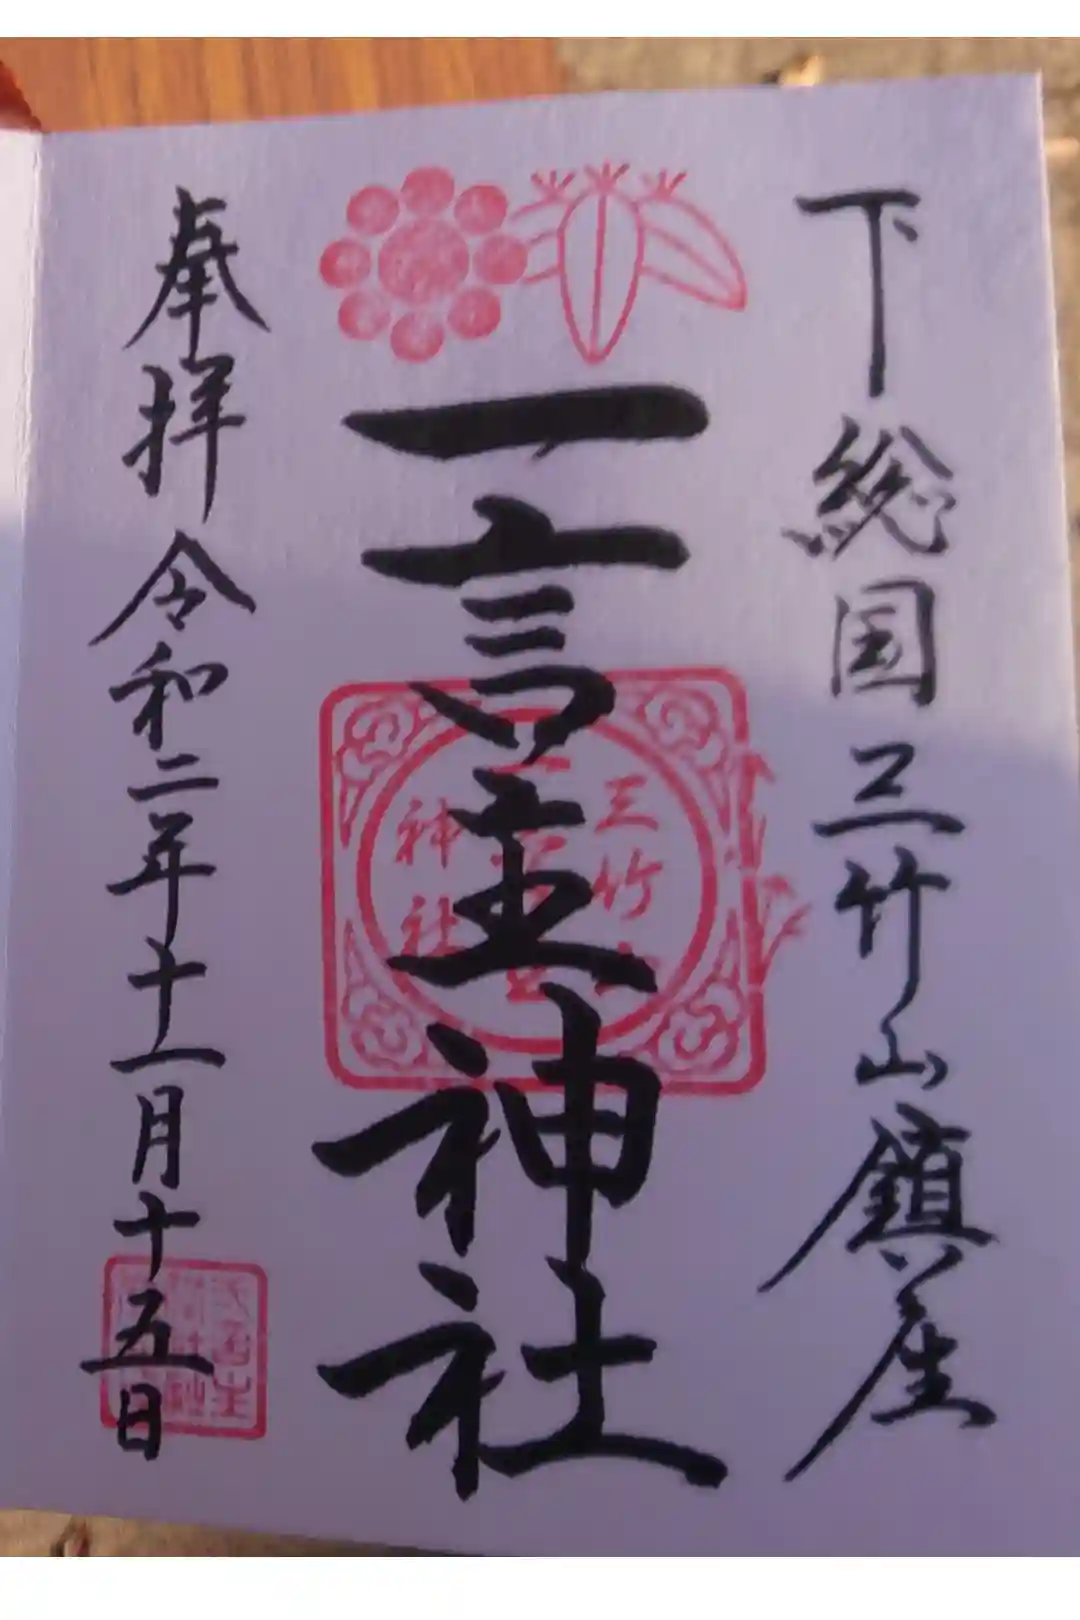 下総国三竹山鎮座
一言主神社
三竹山
神社
奉拝 令和二年十一月十五日